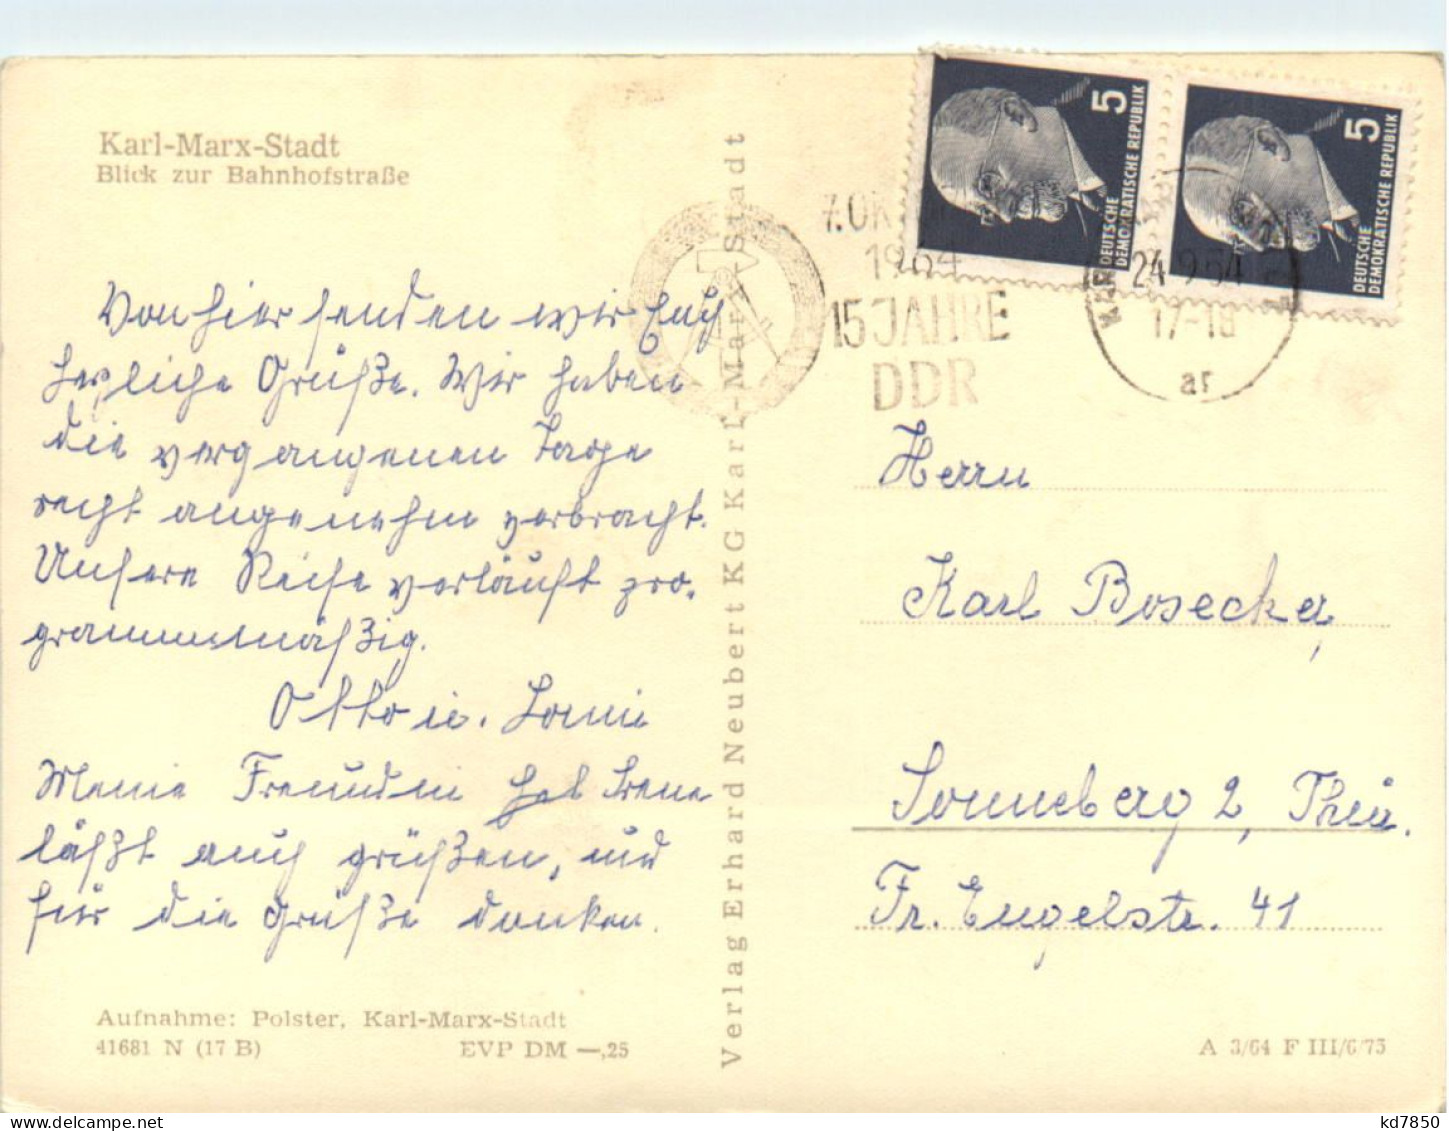 Karl-Marx-Stadt
Blick zur Bahnhofstraße
Von hier senden wir Euch
herzliche Grüße. Wir haben
die vergangenen Tage
recht angenehm verbracht.
Unsere Reise verläuft pro-
grammmäßig.
Otto u. Lonni
Meine Freundin Irene
läßt auch grüßen, und
für die Grüße danken.
Aufnahme: Polster, Karl-Marx-Stadt
41681 N (17 B) EVP DM —,25
Verlag Erhard Neubert KG Karl-Marx-Stadt
5
DEUTSCHE
DEMOKRATISCHE REPUBLIK
5
DEUTSCHE
DEMOKRATISCHE REPUBLIK
1964
15 JAHRE
DDR
17-18
ar
Herrn
Karl Bosecker,
Sonneberg 2, Thür.
Fr. Engelstr. 41
A 3/64 F III/6/73
kd7850